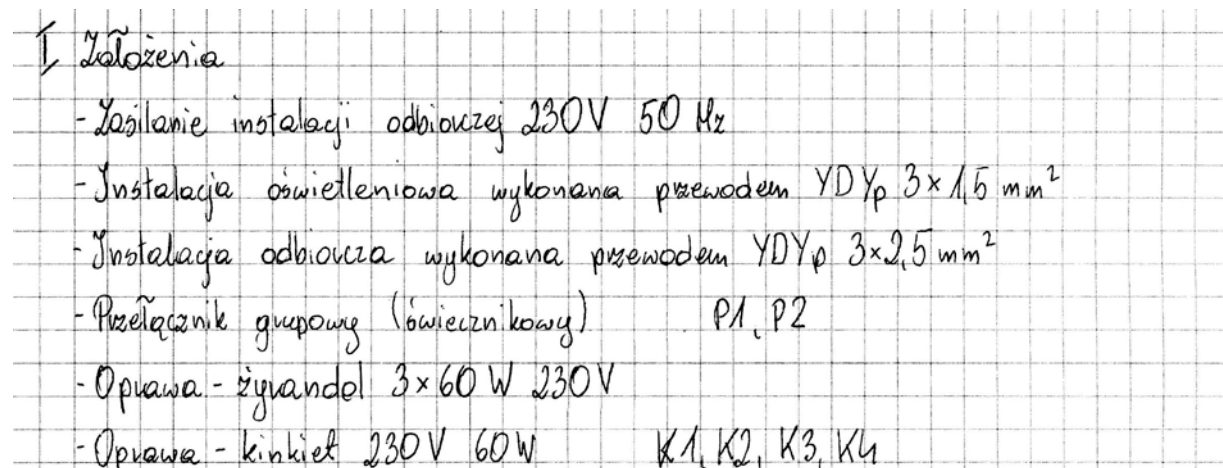 I. Założenia
- Zasilanie instalacji odbiorczej 230V 50 Hz
- Instalacja oświetleniowa wykonana przewodem YDYp 3×1,5 mm²
- Instalacja odbiorcza wykonana przewodem YDYp 3×2,5 mm²
- Przełącznik grupowy (świecznikowy) P1, P2
- Oprawa - żyrandol 3×60 W 230V
- Oprawa - kinkiet 230V 60W K1, K2, K3, K4